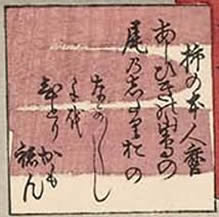 柿の本人麿
あしひきの山鳥の
尾乃志多り尾の
なか〳〵し
よを
ひとり
かも
ねん